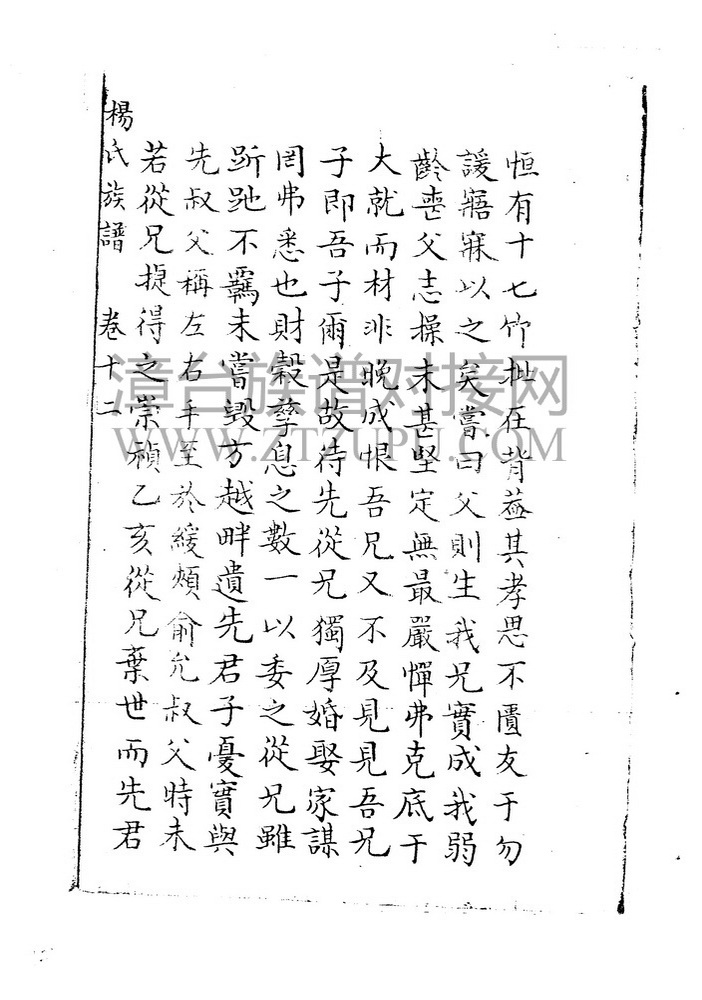 恒有十七竹杖在背蓋其孝思不匱友于勿
諼寤寐以之矣嘗曰父則生我兄實成我弱
齡喪父志操未甚堅定無最嚴憚弗克底于
大就而材非晚成恨吾兄又不及見見吾兄
子即吾子爾是故待先從兄獨厚婚娶家謀
罔弗悉也財穀孳息之數一以委之從兄雖
跅跎不羈未嘗毀方越畔遺先君子憂實與
先叔父稱左右手至於緩頰俞允叔父時未
若從兄捷得之崇禎乙亥從兄棄世而先君
楊氏族譜 卷十二
漳台族谱对接网
WWW.ZTZUPU.COM